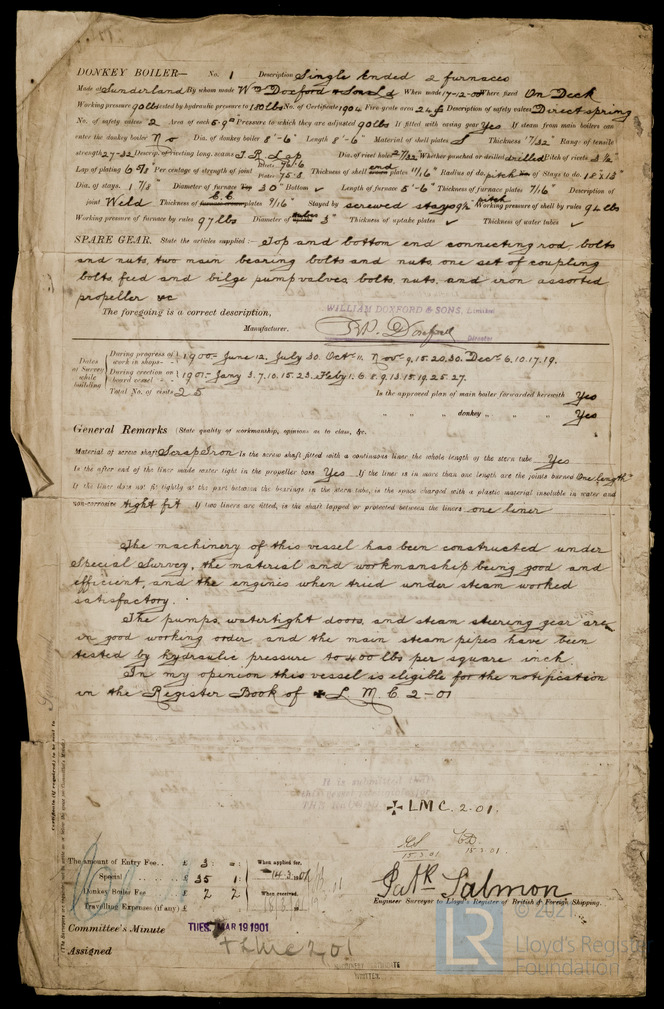 DONKEY BOILER— No. 1 Description Single Ended 2 furnaces
Made at Sunderland By whom made Wm Doxford & Sons Ld When made 17-12-00 Where fixed On Deck
Working pressure 90 lbs tested by hydraulic pressure to 180 lbs No. of Certificate 1904 Fire grate area 24 f Description of safety valves Direct spring
No. of safety valves 2 Area of each 5.9" Pressure to which they are adjusted 90 lbs If fitted with easing gear Yes If steam from main boilers can
enter the donkey boiler No Dia. of donkey boiler 8'-6" Length 8'-6" Material of shell plates S Thickness 17/32" Range of tensile
strength 27-32 Descrip. of riveting long. seams T R Lap Dia. of rivet holes 27/32 Whether punched or drilled drilled Pitch of rivets 3 1/2
Lap of plating 6 7/8 Per centage of strength of joint Rivets 76.6 Plates 75.8 Thickness of shell end plates 11/16" Radius of do. pitch No. of Stays to do. 18 x 13
Dia. of stays. 1 7/8" Diameter of furnace Top 30" Bottom ✓ Length of furnace 5'-6" Thickness of furnace plates 7/16" Description of
joint Weld Thickness of C.C. plates 9/16" Stayed by screwed stays 9 1/2" pitch Working pressure of shell by rules 94 lbs
Working pressure of furnace by rules 97 lbs Diameter of tubes 3" Thickness of uptake plates ✓ Thickness of water tubes ✓
SPARE GEAR. State the articles supplied:— Top and bottom end connecting rod, bolts
and nuts, two main bearing bolts and nuts, one set of coupling
bolts, feed and bilge pump valves, bolts, nuts, and iron assorted
propeller &c
The foregoing is a correct description, WILLIAM DOXFORD & SONS, Limited
Manufacturer. R.P. Doxford Director
Dates of Survey while building
During progress of work in shops— 1900- June 12, July 30. Oct 11. Nov 9.15.20.30. Dec 6.10.17.19.
During erection on board vessel— 1901- Jany 3.7.10.15.23. Feby 1.6.8.9.13.15.19.25.27.
Total No. of visits 25 Is the approved plan of main boiler forwarded herewith Yes
" " " donkey " " " Yes
General Remarks (State quality of workmanship, opinions as to class, &c.
Material of screw shaft Scrap Iron Is the screw shaft fitted with a continuous liner the whole length of the stern tube Yes
Is the after end of the liner made water tight in the propeller boss Yes If the liner is in more than one length are the joints burned One length
If the liner does not fit tightly at the part between the bearings in the stern tube, is the space charged with a plastic material insoluble in water and
non-corrosive tight fit If two liners are fitted, is the shaft lapped or protected between the liners one liner
The machinery of this vessel has been constructed under
Special Survey, the material and workmanship being good and
efficient, and the engines when tried under steam worked
satisfactory.
The pumps, watertight doors, and steam steering gear are
in good working order and the main steam pipes have been
tested by hydraulic pressure to 400 lbs per square inch.
In my opinion this vessel is eligible for the notification
in the Register Book of ✠ L M C 2-01
It is submitted that
✠ LMC. 2.01.
15.3.01 15.3.01.
The amount of Entry Fee . . £ 3 : " : When applied for,
Special . . . . £ 35 : 1 :
Donkey Boiler Fee . . £ 2 : 2 : When received,
Travelling Expenses (if any) £ : :
Patk Salmon
Engineer Surveyor to Lloyd's Register of British & Foreign Shipping.
Committee's Minute TUES. MAR 19 1901
Assigned + LMC 2,01
MACHINERY CERTIFICATE
WRITTEN.
© 2021
LR
Lloyd's Register
Foundation